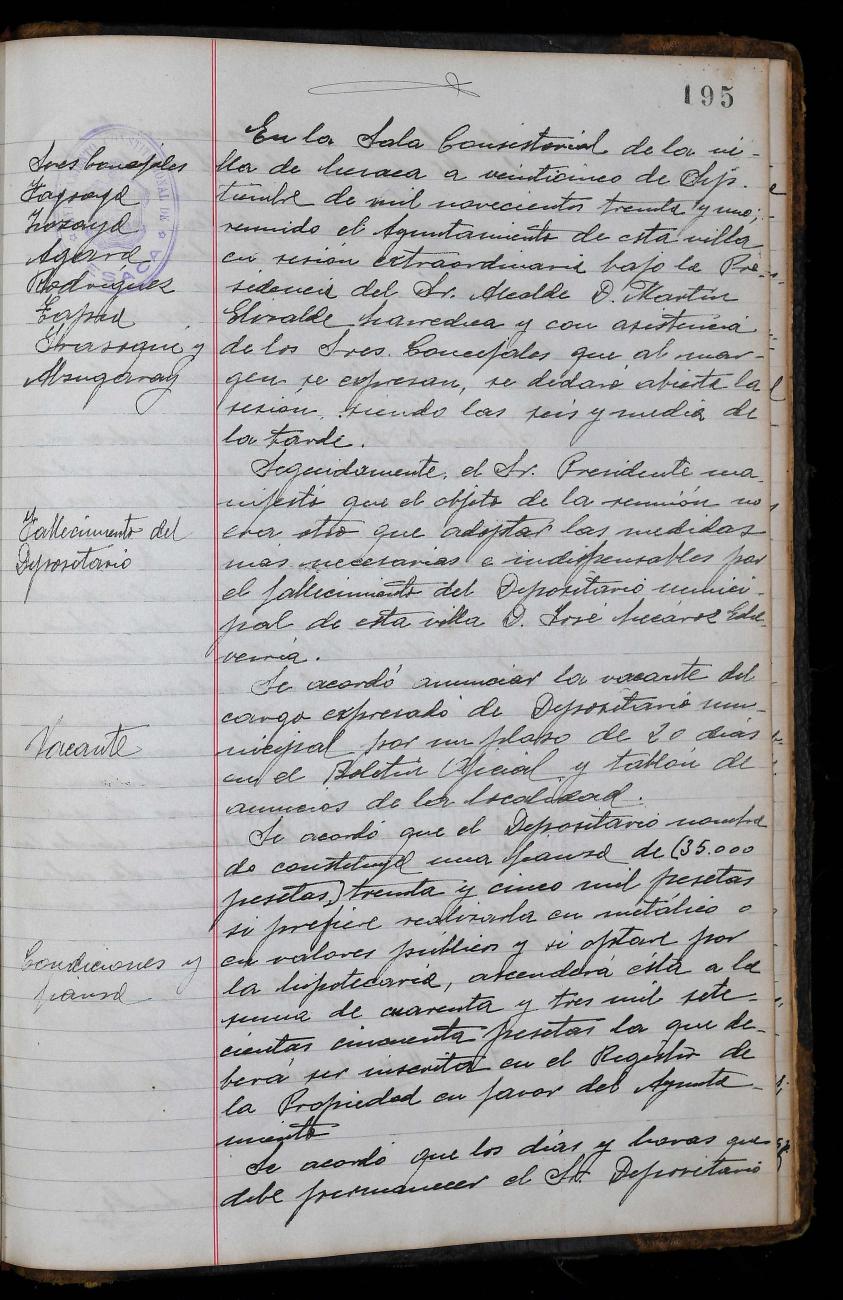 195
Sres Concejales
Lozaya
Rodríguez
Zapad
y
Alzugaray
En la Sala Consistorial de la vi-
lla de Lesaca a veinticinco de Sep-
tiembre de mil novecientos treinta y uno;
reunido el Ayuntamiento de esta villa
en sesión extraordinaria bajo la Pre-
sidencia del Sr. Alcalde D. Martín
Elizalde y con asistencia
de los Sres. Concejales que al mar-
gen se expresan, se declaró abierta la
sesión, siendo las seis y media de
la tarde.
Fallecimiento del
Depositario
Seguidamente, el Sr. Presidente ma-
nifestó que el objeto de la reunión no
era otro que adoptar las medidas
mas necesarias e indispensables por
el fallecimiento del Depositario munici-
pal de esta villa D. José
Vacante
Se acordó anunciar la vacante del
cargo expresado de Depositario mu-
nicipal por un plazo de 20 días
en el Boletin Oficial y tablón de
anuncios de la localidad.
Condiciones y
fianza
Se acordó que el Depositario nombra
do constituya una fianza de (35.000
pesetas) treinta y cinco mil pesetas
si prefiere realizarla en metálico o
en valores públicos y si optare por
la hipotecaria, ascenderá ésta a la
suma de cuarenta y tres mil sete-
cientas cincuenta pesetas la que de-
berá ser inscrita en el Registro de
la Propiedad en favor del Ayunta-
miento
Se acordó que los días y horas que
debe permanecer el Sr. Depositario